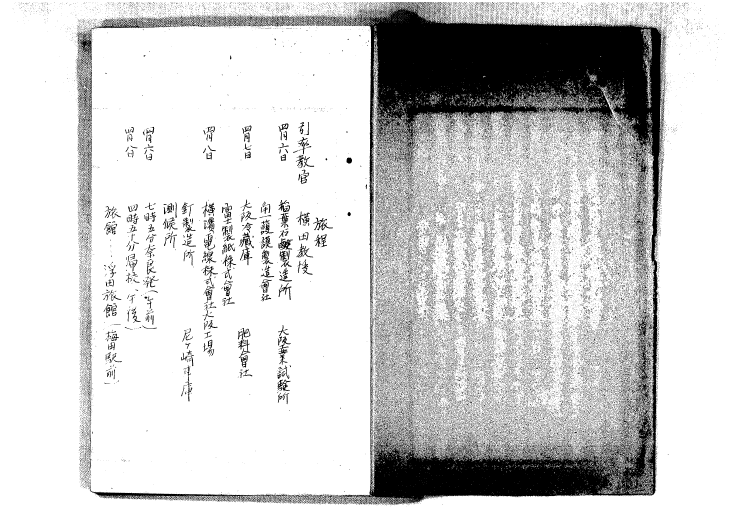 旅程
引率教官 横田教授
四月六日 稲葉石鹸製造所 大阪工業試験所
同一護謨製造会社
四月七日 大阪冷蔵庫 肥料會社
富士製紙株式會社
四月八日 横濱電線株式會社大阪工場
釘製造所 尼ヶ崎車庫
測候所
四月六日 七時五分奈良発(午前)
四月八日 四時五十分帰校(午後)
旅館……浮田旅館(梅田駅前)